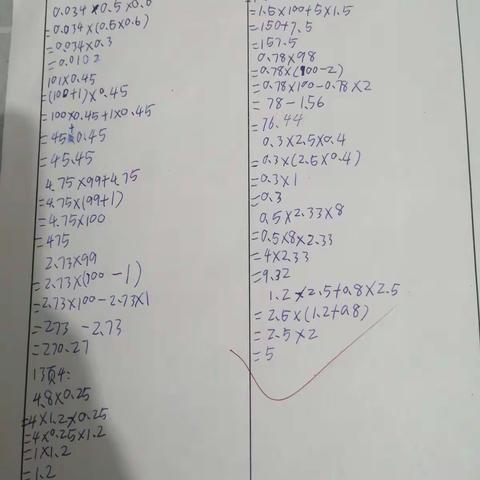 0.034×0.5×0.6
=0.034×(0.5×0.6)
=0.034×0.3
=0.0102
101×0.45
=(100+1)×0.45
=100×0.45+1×0.45
=45+0.45
=45.45
4.75×99+4.75
=4.75×(99+1)
=4.75×100
=475
2.73×99
=2.73×(100-1)
=2.73×100-2.73×1
=273-2.73
=270.27
13页4:
4.8×0.25
=4×1.2×0.25
=4×0.25×1.2
=1×1.2
=1.2
=1.5×100+5×1.5
=150+7.5
=157.5
0.78×98
=0.78×(100-2)
=0.78×100-0.78×2
=78-1.56
=76.44
0.3×2.5×0.4
=0.3×(2.5×0.4)
=0.3×1
=0.3
0.5×2.33×8
=0.5×8×2.33
=4×2.33
=9.32
1.2×2.5+0.8×2.5
=2.5×(1.2+0.8)
=2.5×2
=5